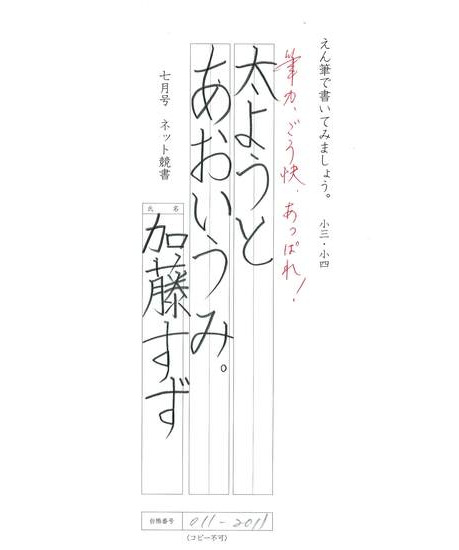 えん筆で書いてみましょう。 小三・小四
筆力、ごう快、あっぱれ！
太ようと
あおいうみ。
七月号 ネット競書
氏名
加藤すず
台帳番号 011-2011
(コピー不可)